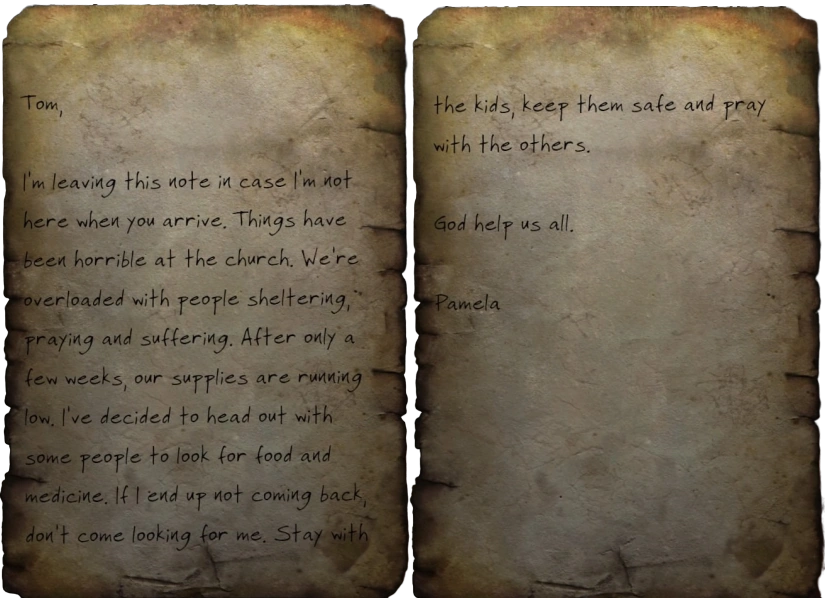 Tom,
I'm leaving this note in case I'm not
here when you arrive. Things have
been horrible at the church. We're
overloaded with people sheltering,
praying and suffering. After only a
few weeks, our supplies are running
low. I've decided to head out with
some people to look for food and
medicine. If I end up not coming back,
don't come looking for me. Stay with
the kids, keep them safe and pray
with the others.
God help us all.
Pamela